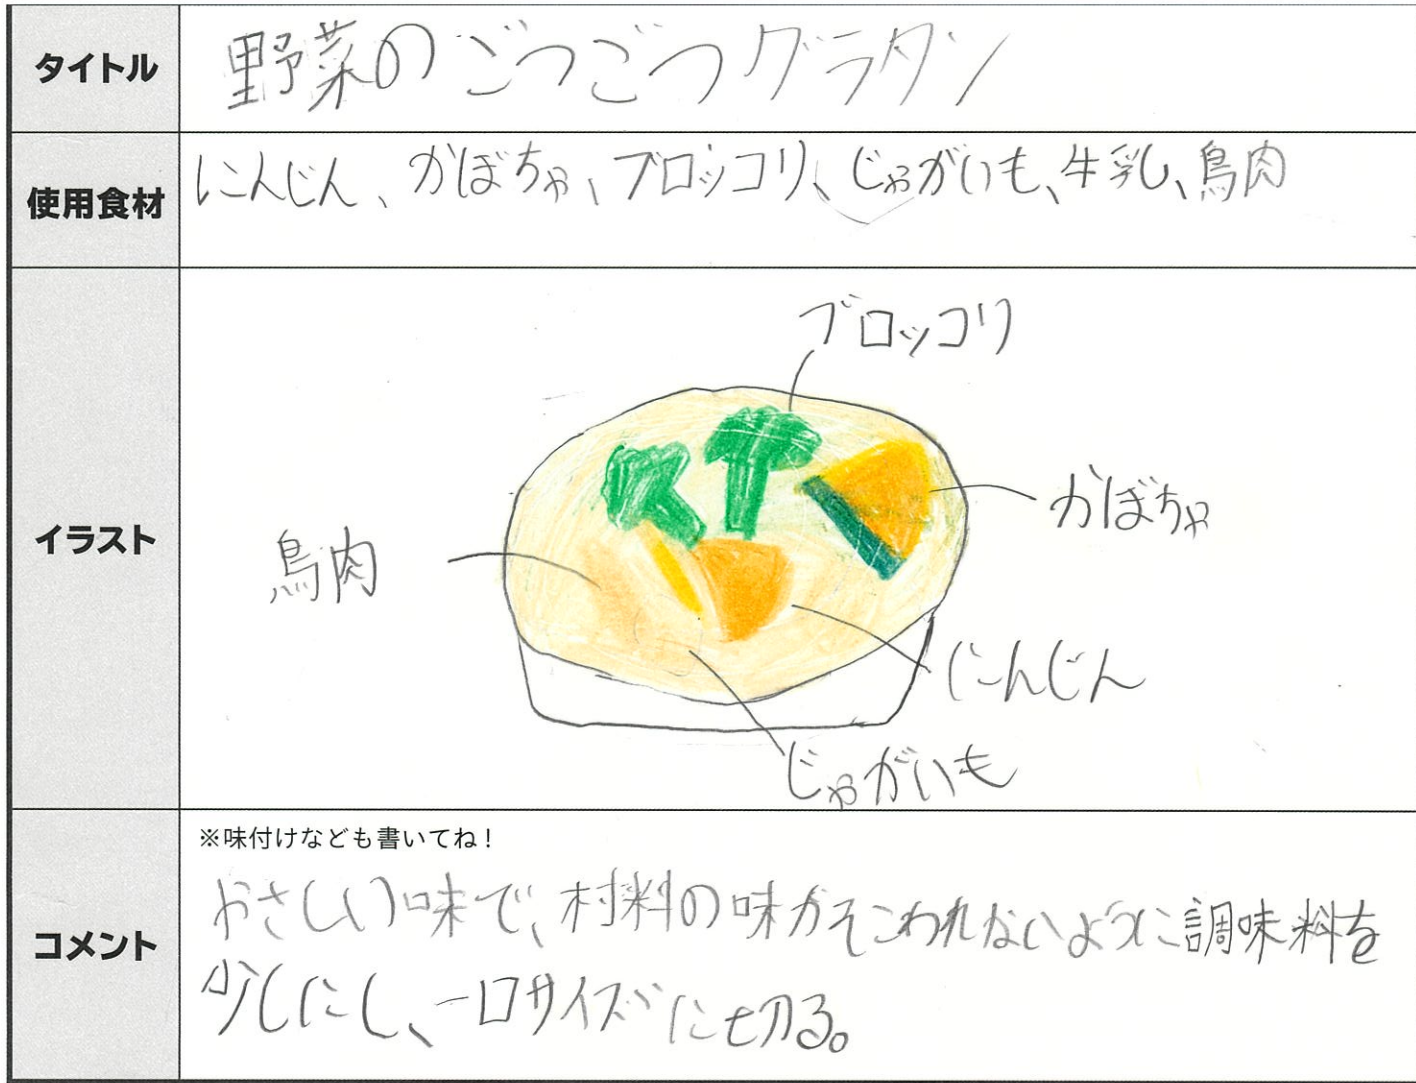 タイトル
野菜のごつごつグラタン
使用食材
にんじん、かぼちゃ、ブロッコリ、じゃがいも、牛乳、鳥肉
イラスト
ブロッコリ
かぼちゃ
鳥肉
にんじん
じゃがいも
コメント
※味付けなども書いてね!
やさしい味で、材料の味がそこわれないように調味料を
少しにし、一口サイズに切る。